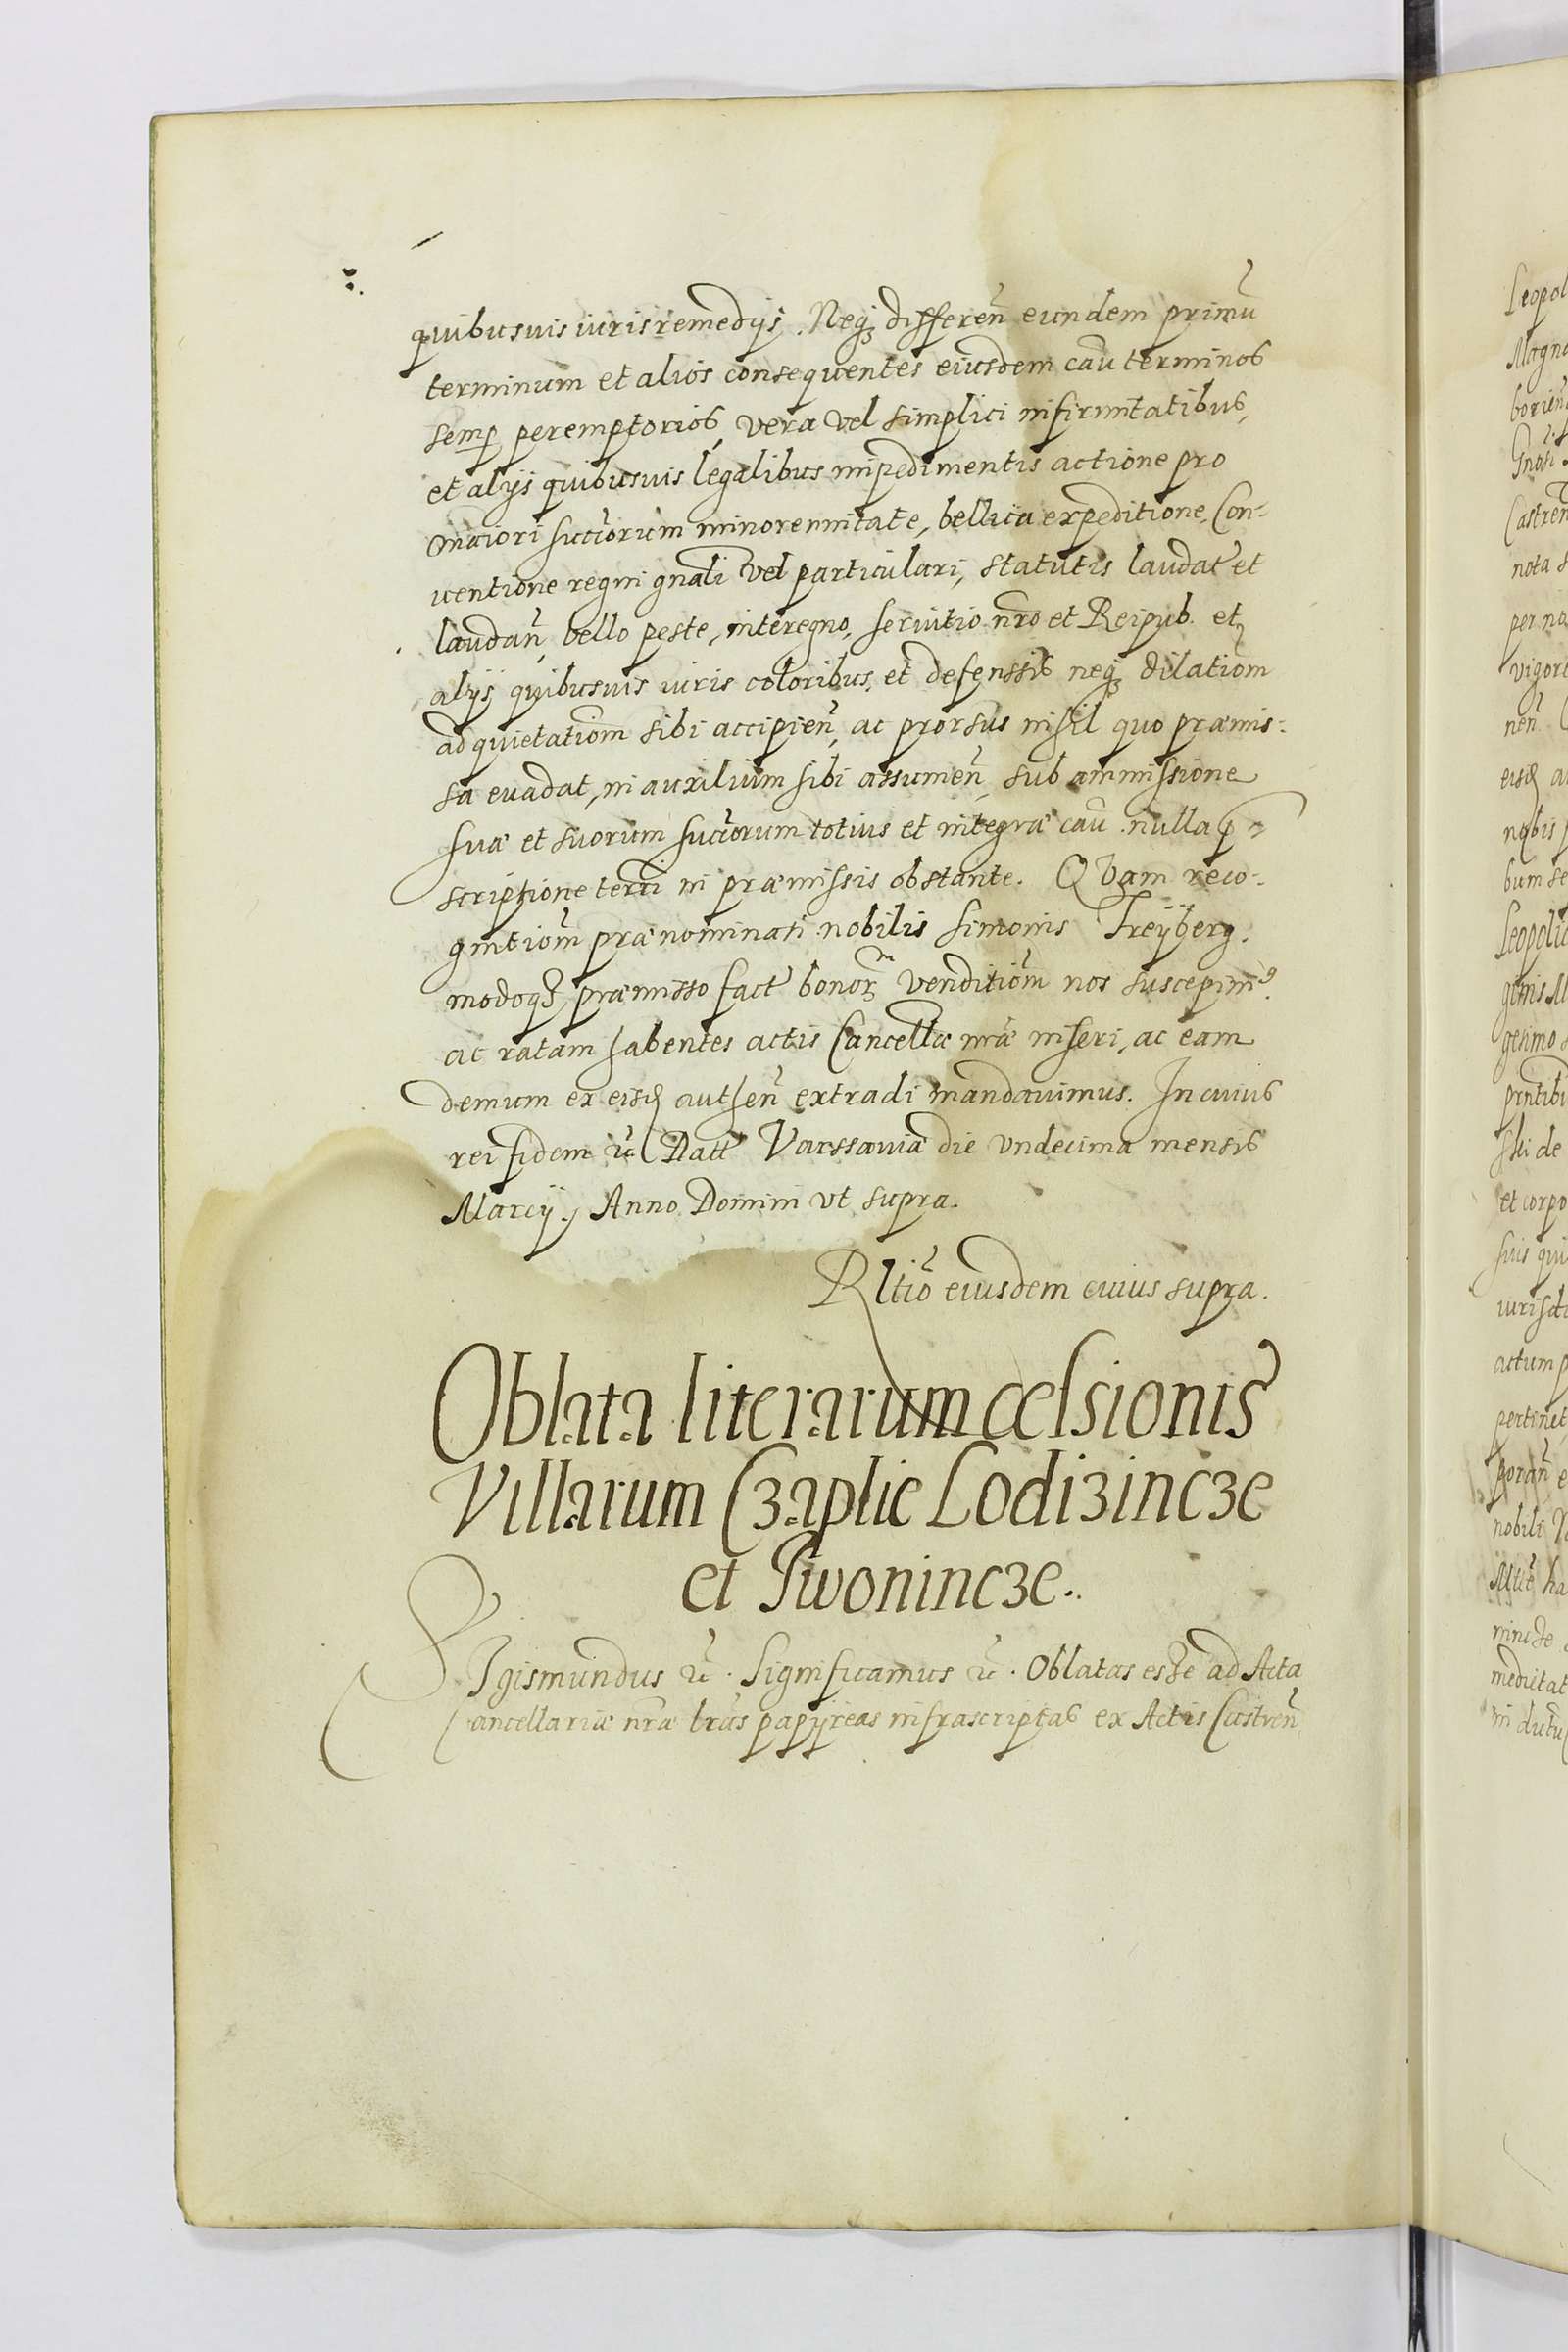 quibusuis iuris remedijs. Neq₃ differen̄ eundem primū
terminum et alios consequentes eiusdem cau̅ terminos
semꝑ peremptorios, vera vel simplici infirmitatibus,
et alijs quibusuis legalibus impedimentis actione pro
maiori succ̄orum minorennitate, bellica expeditione, Con-
uentione regni gn̄ali vel particulari, statutis laudat̄ et
laudan̄, bello peste, interegno, seruitio nr̄o et Reipub. et
alijs quibusuis iuris coloribus, et defenssis neq₃ dilatiōm
ad quietatiōm sibi accipien̄, ac prorsus nihil quo præmis-
sa euadat, in auxilium sibi assumen̄, sub ammissione
suæ et suorum succ̄orum totius et integræ cau̅ nulla ꝓ-
scriptione terr̄i in præmissis obstante. QVam reco-
gnitiōm prænominati nobilis Simonis Freÿberg.
modoq₃ præmisso fact̄ bonorꝝ venditiōm nos suscepim⁹
ac ratam habentes actis Cancellæ nr̄æ inseri, ac eam
demum ex eisd̄ authen̄ extradi mandauimus. In cuius
rei fidem ꝛc̄ Datt̄ Varssauiæ die vndecima mensis
Marcij. Anno Domini vt supra.
Rltīo eiusdem cuius supra.
Oblata literarum cessionis
Villarum Czaplie Lodizincze
et Iwonincze.
SIgismundus ꝛc̄. Significamus ꝛc̄. Oblatas esse ad Acta
Cancellariæ nr̄æ lr̄as papÿreas infrascriptas ex Actis Castren̄
Leopol
Magn
nota
vigore
nen̄
nobis
Leopoli
gesimo
et corpo
suis qui
actum p
pertinet
nobili
medietat